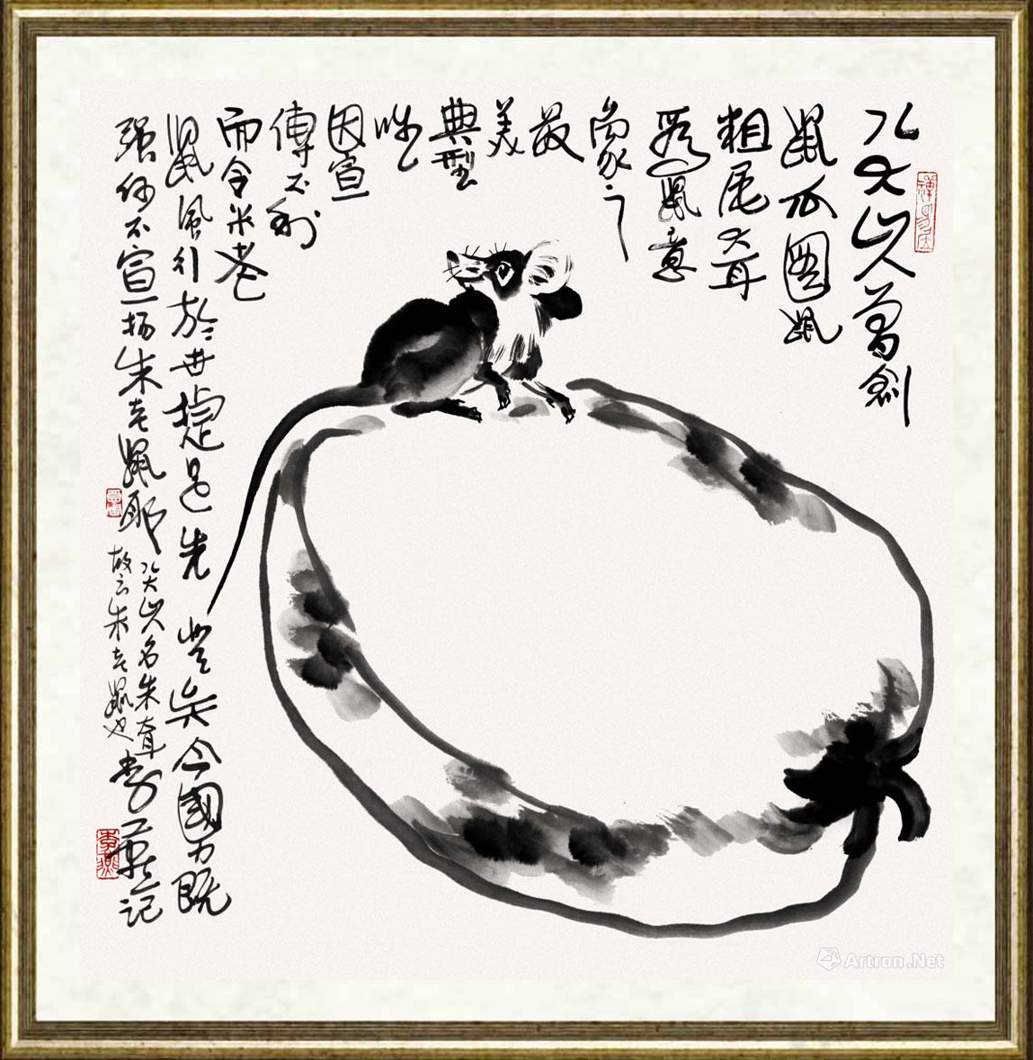 八大山人嘗創
鼠瓜圖鼠
粗尾大耳
鼠意
象之
最
美
典型
因宣
傳不利
而令米老
鼠風行於世搶足先矣今國力既
强何不宣揚朱老鼠耶
八大山人名朱耷
故云朱老鼠也
李燕記
李燕
Artron.Net